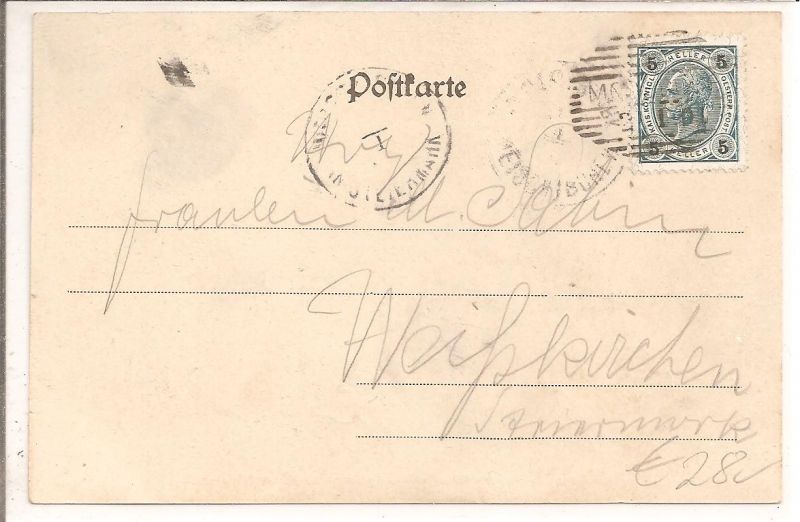 Postkarte
5 HELLER 5
KAIS. KÖNIGL. OESTERR. POST
5 HELLER 5
IN STEIERMARK
Fräulen M.
Weißkirchen
Steiermark
€ 28